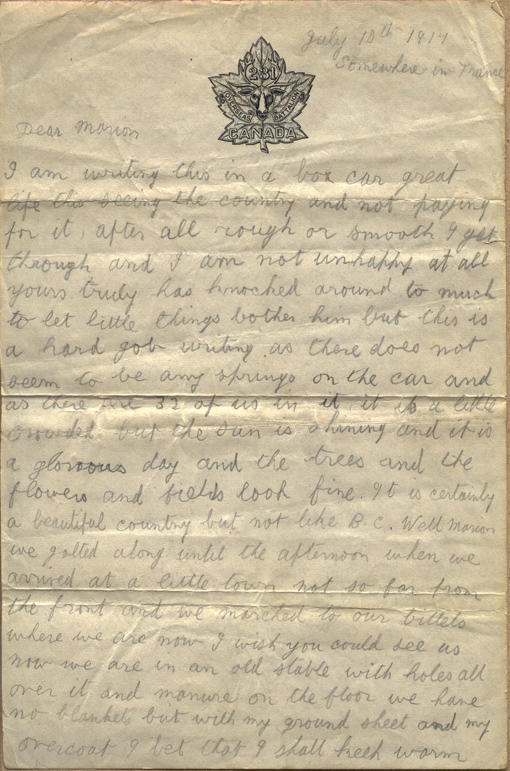 July 10th 1917
Somewhere in France
231
OVERSEAS BATTALION
CANADA
Dear Marion
I am writing this in a box car great
life this seeing the country and not paying
for it, after all rough or smooth I get
through and I am not unhappy at all
yours truly has knocked around to much
to let little things bother him but this is
a hard gob writing as there does not
seem to be any springs on the car and
as there are 32 of us in it, it is a little
crowded but the sun is shining and it is
a glorious day and the trees and the
flowers and fields look fine. It is certainly
a beautiful country but not like B.C. Well Marion
we jolted along until the afternoon when we
arrived at a little town not so far from
the front and we marched to our billets
where we are now I wish you could see us
now we are in an old stable with holes all
over it and manure on the floor we have
no blankets but with my ground sheet and my
overcoat I bet that I shall keep warm